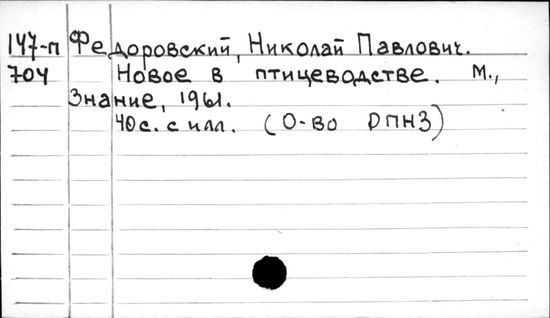 147-п Федоровский, Николай Павлович.
704 Новое в птицеводстве. М.,
Знание, 1961.
40 с. с илл. (О-во ДПНЗ)